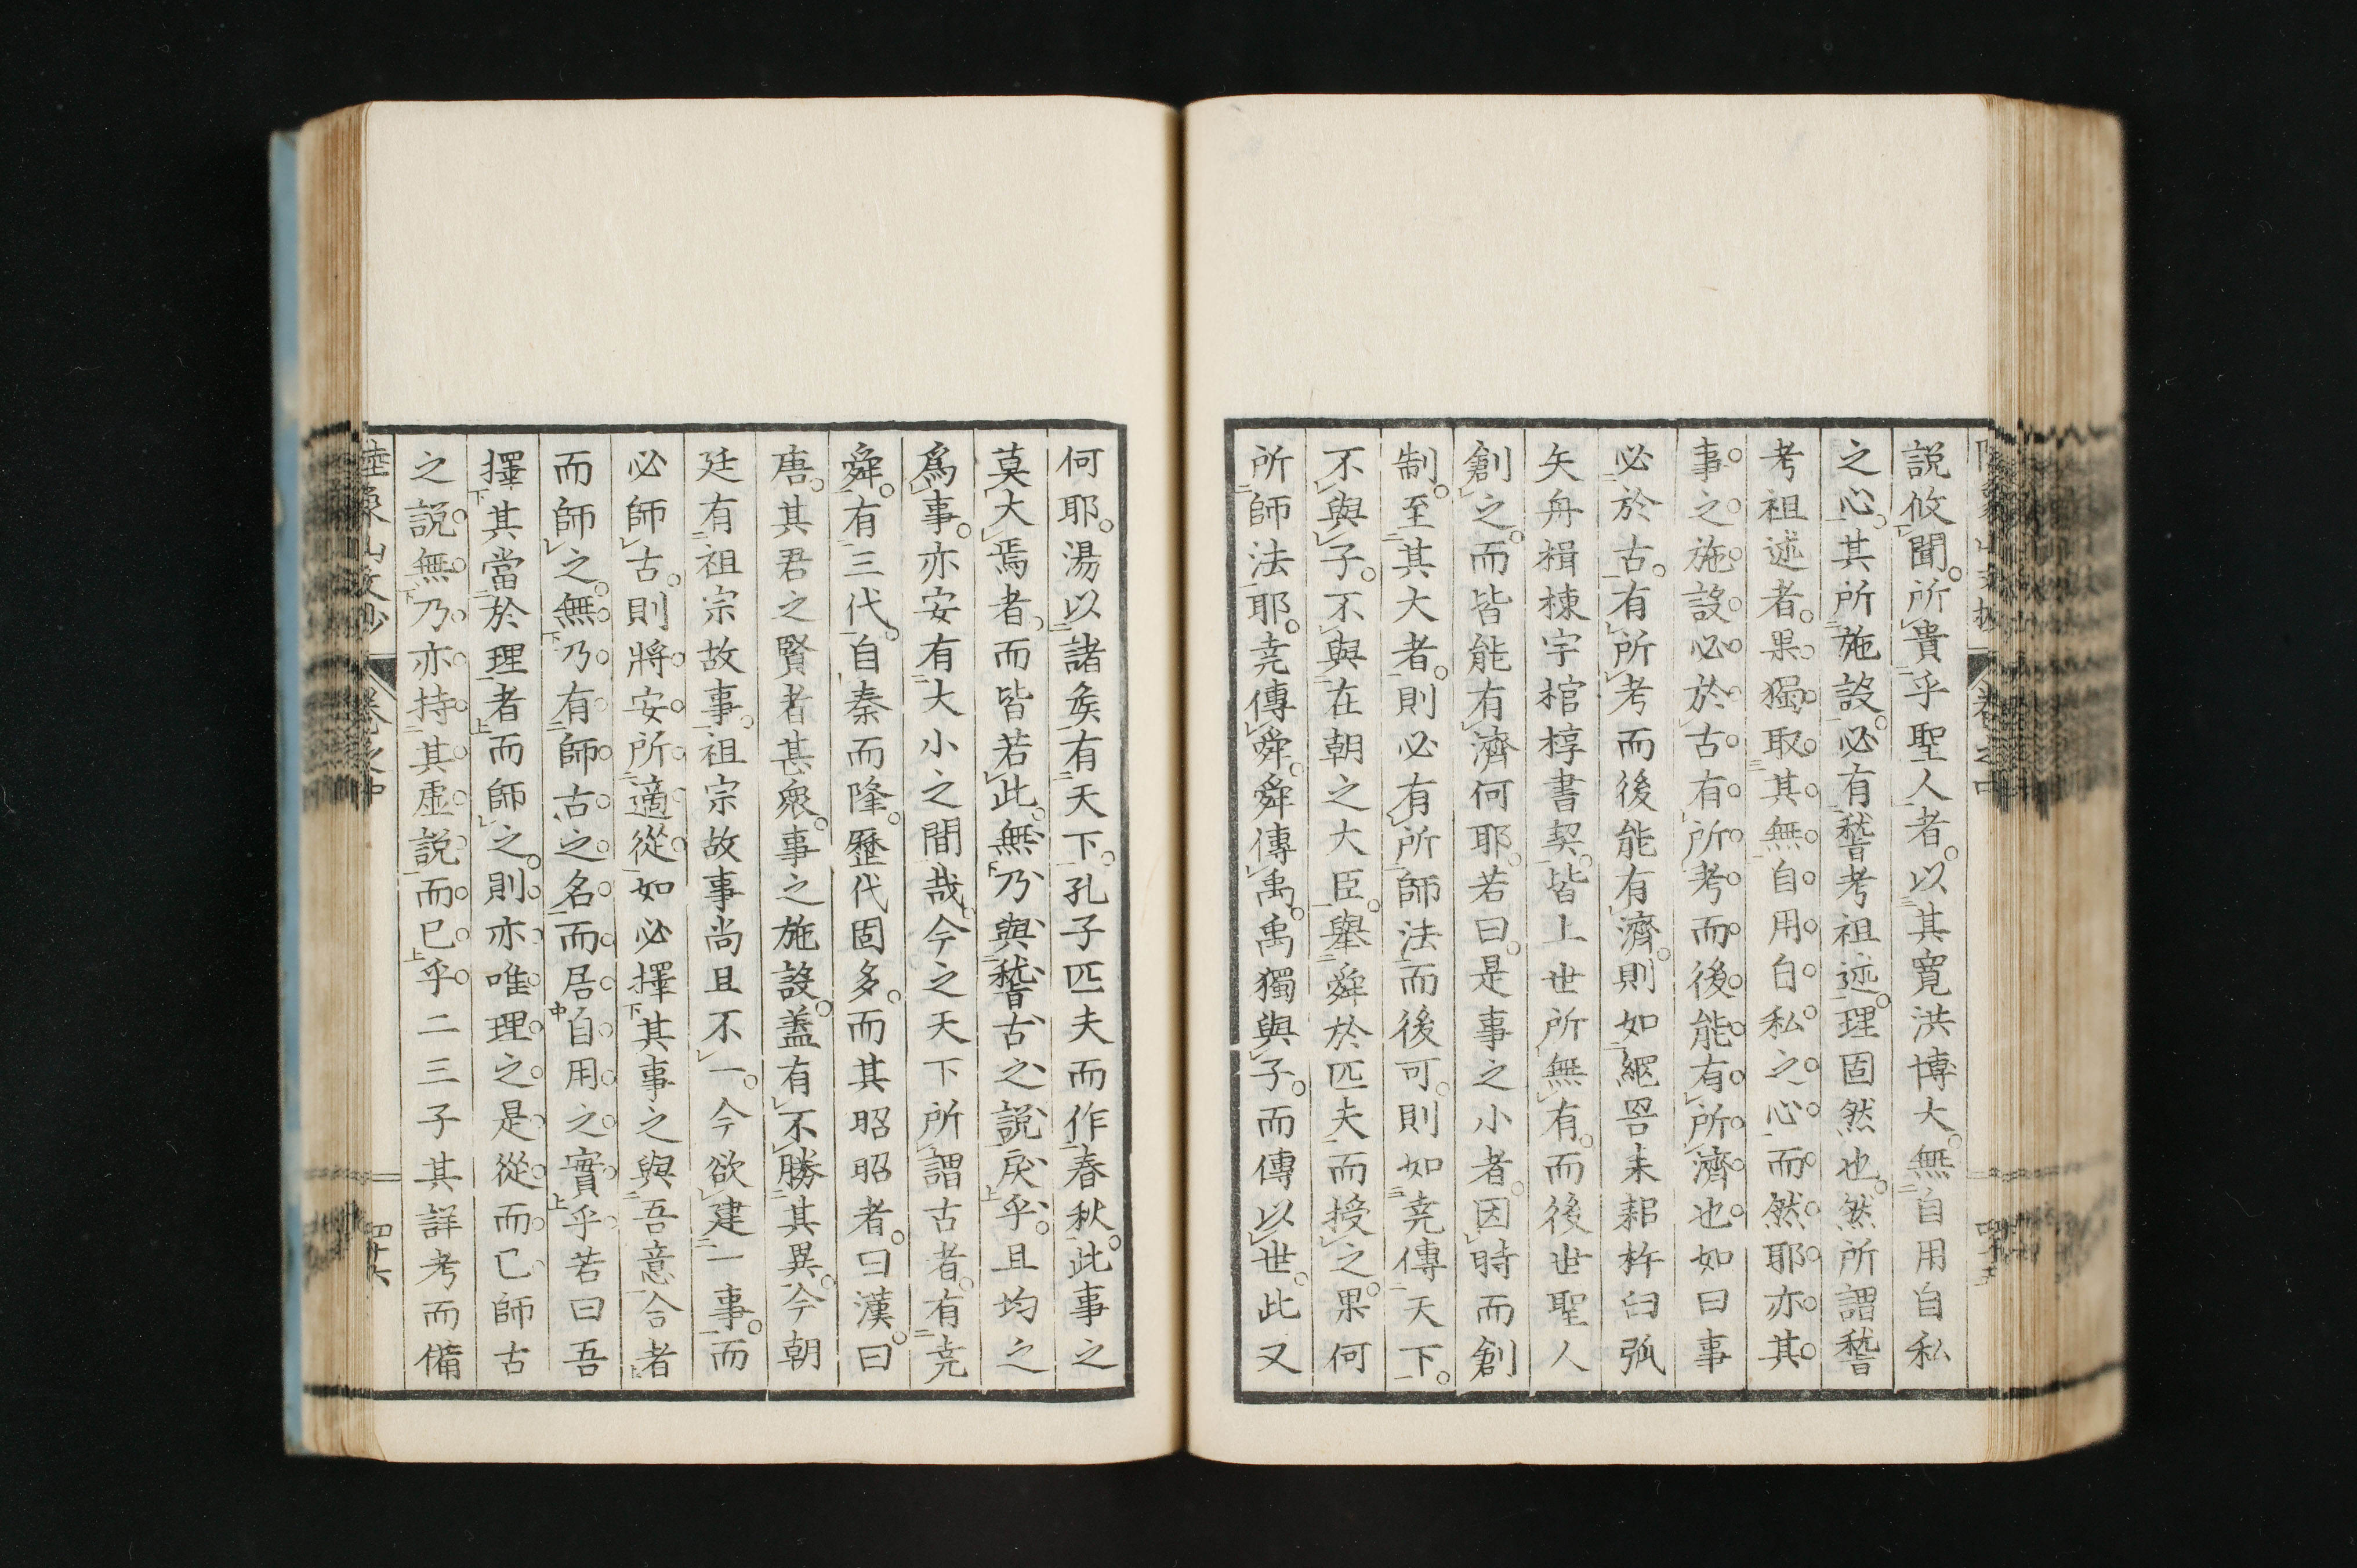 説攸聞所貴乎聖人者以其寛洪博大無自用自私
之心其所施設必有稽考祖述理固然也然所謂稽
考祖述者果獨取其無自用自私之心而然耶亦其
事之施設必於古有所考而後能有所濟也如曰事
必於古有所考而後能有濟則如網罟耒耜杵臼弧
矢舟楫棟宇棺椁書契皆上世所無有而後世聖人
創之而皆能有濟何耶若曰是事之小者因時而創
制至其大者則必有所師法而後可則如尭傳天下
不與子不與在朝之大臣舉舜於匹夫而授之果何
所師法耶尭傳舜舜傳禹禹獨與子而傳以世此又
何耶湯以諸矦有天下孔子匹夫而作春秋此事之
莫大焉者而皆若此無乃與稽古之説戻乎且均之
爲事亦安有大小之間哉今之天下所謂古者有尭
舜有三代自秦而隆歷代固多而其昭昭者曰漢曰
唐其君之賢者甚衆事之施設葢有不勝其異今朝
廷有祖宗故事祖宗故事尚且不一今欲建一事而
必師古則將安所適從如必擇其事之與吾意合者
而師之無乃有師古之名而居自用之實乎若曰吾
擇其當於理者而師之則亦唯理之是從而已師古
之説無乃亦持其虚説而已乎二三子其詳考而備
陸象山文抄 卷之中 四十六